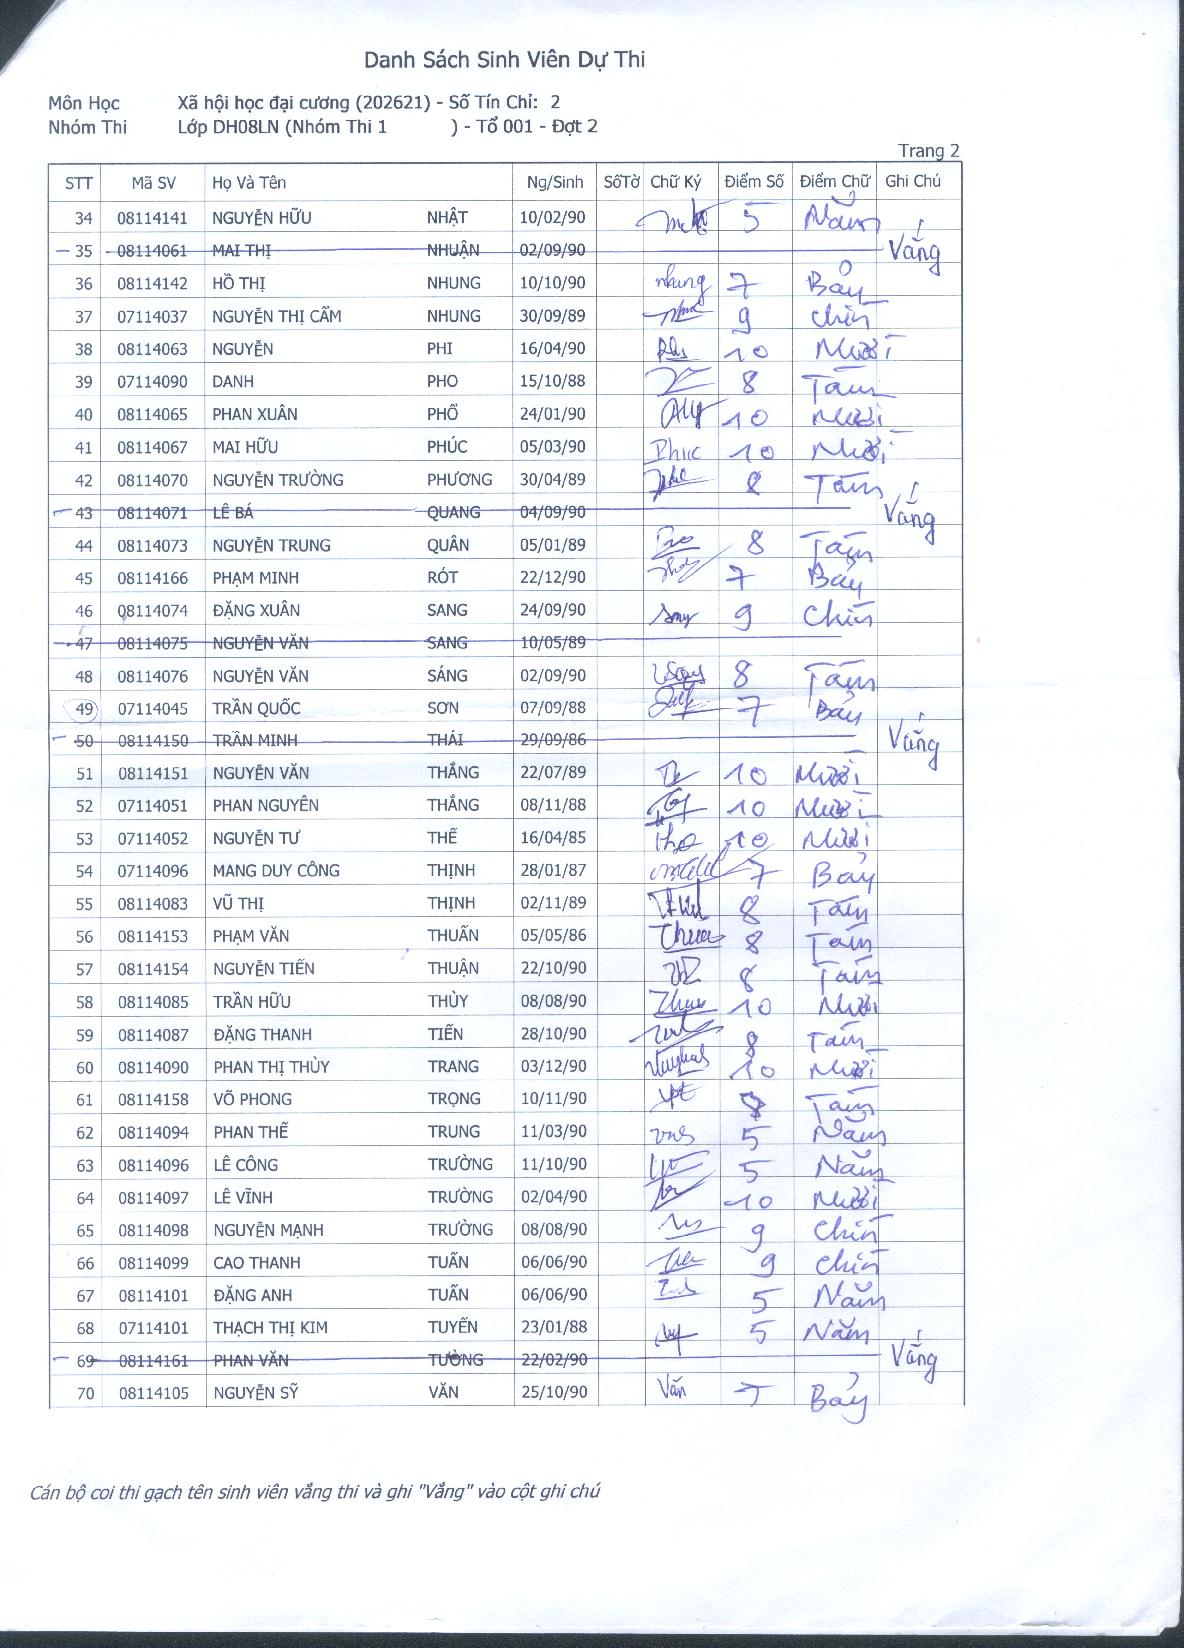 Danh Sách Sinh Viên Dự Thi
Môn Học Xã hội học đại cương (202621) - Số Tín Chỉ: 2
Nhóm Thi Lớp DH08LN (Nhóm Thi 1 ) - Tổ 001 - Đợt 2
Trang 2
STT Mã SV Họ Và Tên Ng/Sinh SốTờ Chữ Ký Điểm Số Điểm Chữ Ghi Chú
34 08114141 NGUYỄN HỮU NHẬT 10/02/90 5 Năm
35 08114061 MAI THỊ NHUẬN 02/09/90 Vắng
36 08114142 HỒ THỊ NHUNG 10/10/90 nhung 7 Bảy
37 07114037 NGUYỄN THỊ CẨM NHUNG 30/09/89 9 chín
38 08114063 NGUYỄN PHI 16/04/90 10 Mười
39 07114090 DANH PHO 15/10/88 8 Tám
40 08114065 PHAN XUÂN PHỔ 24/01/90 10 Mười
41 08114067 MAI HỮU PHÚC 05/03/90 Phuc 10 Mười
42 08114070 NGUYỄN TRƯỜNG PHƯƠNG 30/04/89 8 Tám
43 08114071 LÊ BÁ QUANG 04/09/90 Vắng
44 08114073 NGUYỄN TRUNG QUÂN 05/01/89 8 Tám
45 08114166 PHẠM MINH RÓT 22/12/90 7 Bảy
46 08114074 ĐẶNG XUÂN SANG 24/09/90 9 Chín
47 08114075 NGUYỄN VĂN SANG 10/05/89
48 08114076 NGUYỄN VĂN SÁNG 02/09/90 8 Tám
49 07114045 TRẦN QUỐC SƠN 07/09/88 7 Bảy
50 08114150 TRẦN MINH THÁI 29/09/86 Vắng
51 08114151 NGUYỄN VĂN THẮNG 22/07/89 10 Mười
52 07114051 PHAN NGUYÊN THẮNG 08/11/88 10 Mười
53 07114052 NGUYỄN TƯ THẾ 16/04/85 10 Mười
54 07114096 MANG DUY CÔNG THỊNH 28/01/87 7 Bảy
55 08114083 VŨ THỊ THỊNH 02/11/89 8 Tám
56 08114153 PHẠM VĂN THUẤN 05/05/86 8 Tám
57 08114154 NGUYỄN TIẾN THUẬN 22/10/90 8 Tám
58 08114085 TRẦN HỮU THÙY 08/08/90 10 Mười
59 08114087 ĐẶNG THANH TIẾN 28/10/90 8 Tám
60 08114090 PHAN THỊ THÙY TRANG 03/12/90 10 Mười
61 08114158 VÕ PHONG TRỌNG 10/11/90 8 Tám
62 08114094 PHAN THẾ TRUNG 11/03/90 5 Năm
63 08114096 LÊ CÔNG TRƯỜNG 11/10/90 5 Năm
64 08114097 LÊ VĨNH TRƯỜNG 02/04/90 10 Mười
65 08114098 NGUYỄN MẠNH TRƯỜNG 08/08/90 9 Chín
66 08114099 CAO THANH TUẤN 06/06/90 9 Chín
67 08114101 ĐẶNG ANH TUẤN 06/06/90 5 Năm
68 07114101 THẠCH THỊ KIM TUYẾN 23/01/88 5 Năm
69 08114161 PHAN VĂN TƯỜNG 22/02/90 Vắng
70 08114105 NGUYỄN SỸ VĂN 25/10/90 Văn 7 Bảy
Cán bộ coi thi gạch tên sinh viên vắng thi và ghi "Vắng" vào cột ghi chú